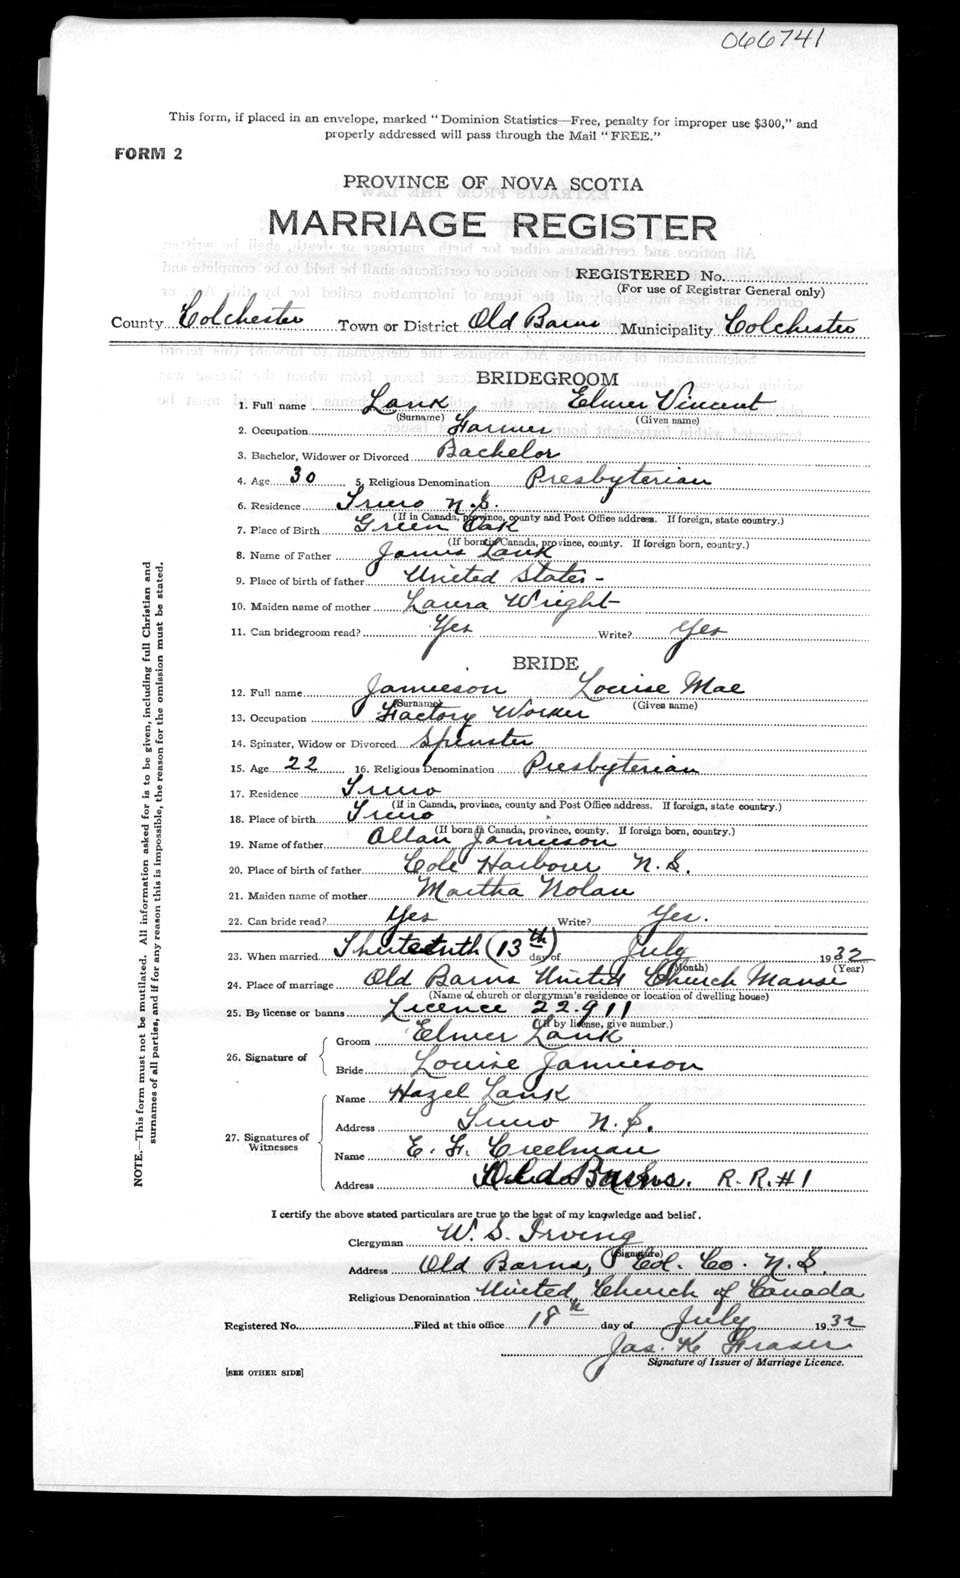 066741
This form, if placed in an envelope, marked "Dominion Statistics—Free, penalty for improper use $300," and
properly addressed will pass through the Mail "FREE."
FORM 2
PROVINCE OF NOVA SCOTIA
MARRIAGE REGISTER
REGISTERED No.
(For use of Registrar General only)
County Colchester Town or District Old Barns Municipality Colchester
BRIDEGROOM
1. Full name Lank Elmer Vincent
(Surname) (Given name)
2. Occupation Farmer
3. Bachelor, Widower or Divorced Bachelor
4. Age 30 5. Religious Denomination Presbyterian
6. Residence Truro N.S.
(If in Canada, province, county and Post Office address. If foreign, state country.)
7. Place of Birth Green Oak
(If born in Canada, province, county. If foreign born, country.)
8. Name of Father James Lank
9. Place of birth of father United States -
10. Maiden name of mother Laura Wright
11. Can bridegroom read? Yes Write? Yes
BRIDE
12. Full name Jamieson Louise Mae
(Surname) (Given name)
13. Occupation Factory Worker
14. Spinster, Widow or Divorced Spinster
15. Age 22 16. Religious Denomination Presbyterian
17. Residence Truro
(If in Canada, province, county and Post Office address. If foreign, state country.)
18. Place of birth Truro
(If born in Canada, province, county. If foreign born, country.)
19. Name of father Allan Jamieson
20. Place of birth of father Cole Harbour N.S.
21. Maiden name of mother Martha Nolan
22. Can bride read? Yes Write? Yes.
23. When married (13th) day of July 1932
(Month) (Year)
24. Place of marriage Old Barns United Church Manse
(Name of church or clergyman's residence or location of dwelling house)
25. By license or banns Licence 22911
(If by license, give number.)
26. Signature of Groom Elmer Lank
Bride Louise Jamieson
27. Signatures of Witnesses Name Hazel Lank
Address Truro N.S.
Name E. F. Creelman
Address Old Barns. R.R.#1
I certify the above stated particulars are true to the best of my knowledge and belief.
Clergyman W. S. Irving
(Signature)
Address Old Barns, Col. Co. N.S.
Religious Denomination United Church of Canada
Registered No. Filed at this office 18th day of July 1932
Jas. K. Fraser
Signature of Issuer of Marriage Licence.
[SEE OTHER SIDE]
NOTE.—This form must not be mutilated. All information asked for is to be given, including full Christian and
surnames of all parties, and if for any reason this is impossible, the reason for the omission must be stated.